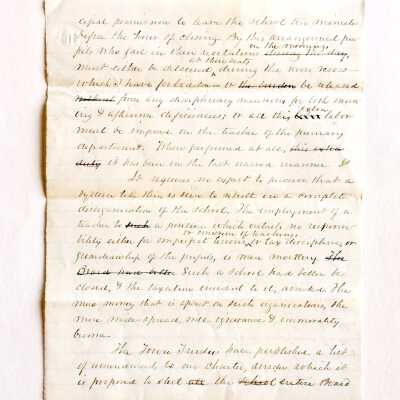 equal permission to leave the school ten minutes
before the hour of closing. By this arrangement pu-
pils who fail in their recitations during the day, on the morning
must either be detained at their seats during the noon recess
which I have forbidden or the burden be released
without from any disciplinary measures for both morn
ing & afternoon deficiencies or all this extra labor
must be imposed on the teacher of the primary
department. When performed at all, this extra
duty it has been in the last named manner
It requires no expert to perceive that a
system like this is sure to result in a complete
disorganization of the school. The employment of a
teacher to such a position which entails no responsi-
bility either for imperfect lessons, or omission of teaching, or lax discipline, or
guardianship of the pupils, is mere mockery. The
Board have better Such a school had better be
closed, & the taxation incident to it, avoided. The
more money that is spent on such organizations, the
more wide spread, will ignorance & immorality
become.
The Town Trustees have published a list
of amendments to our Charter, under which it
is proposed to elect the school entire Board